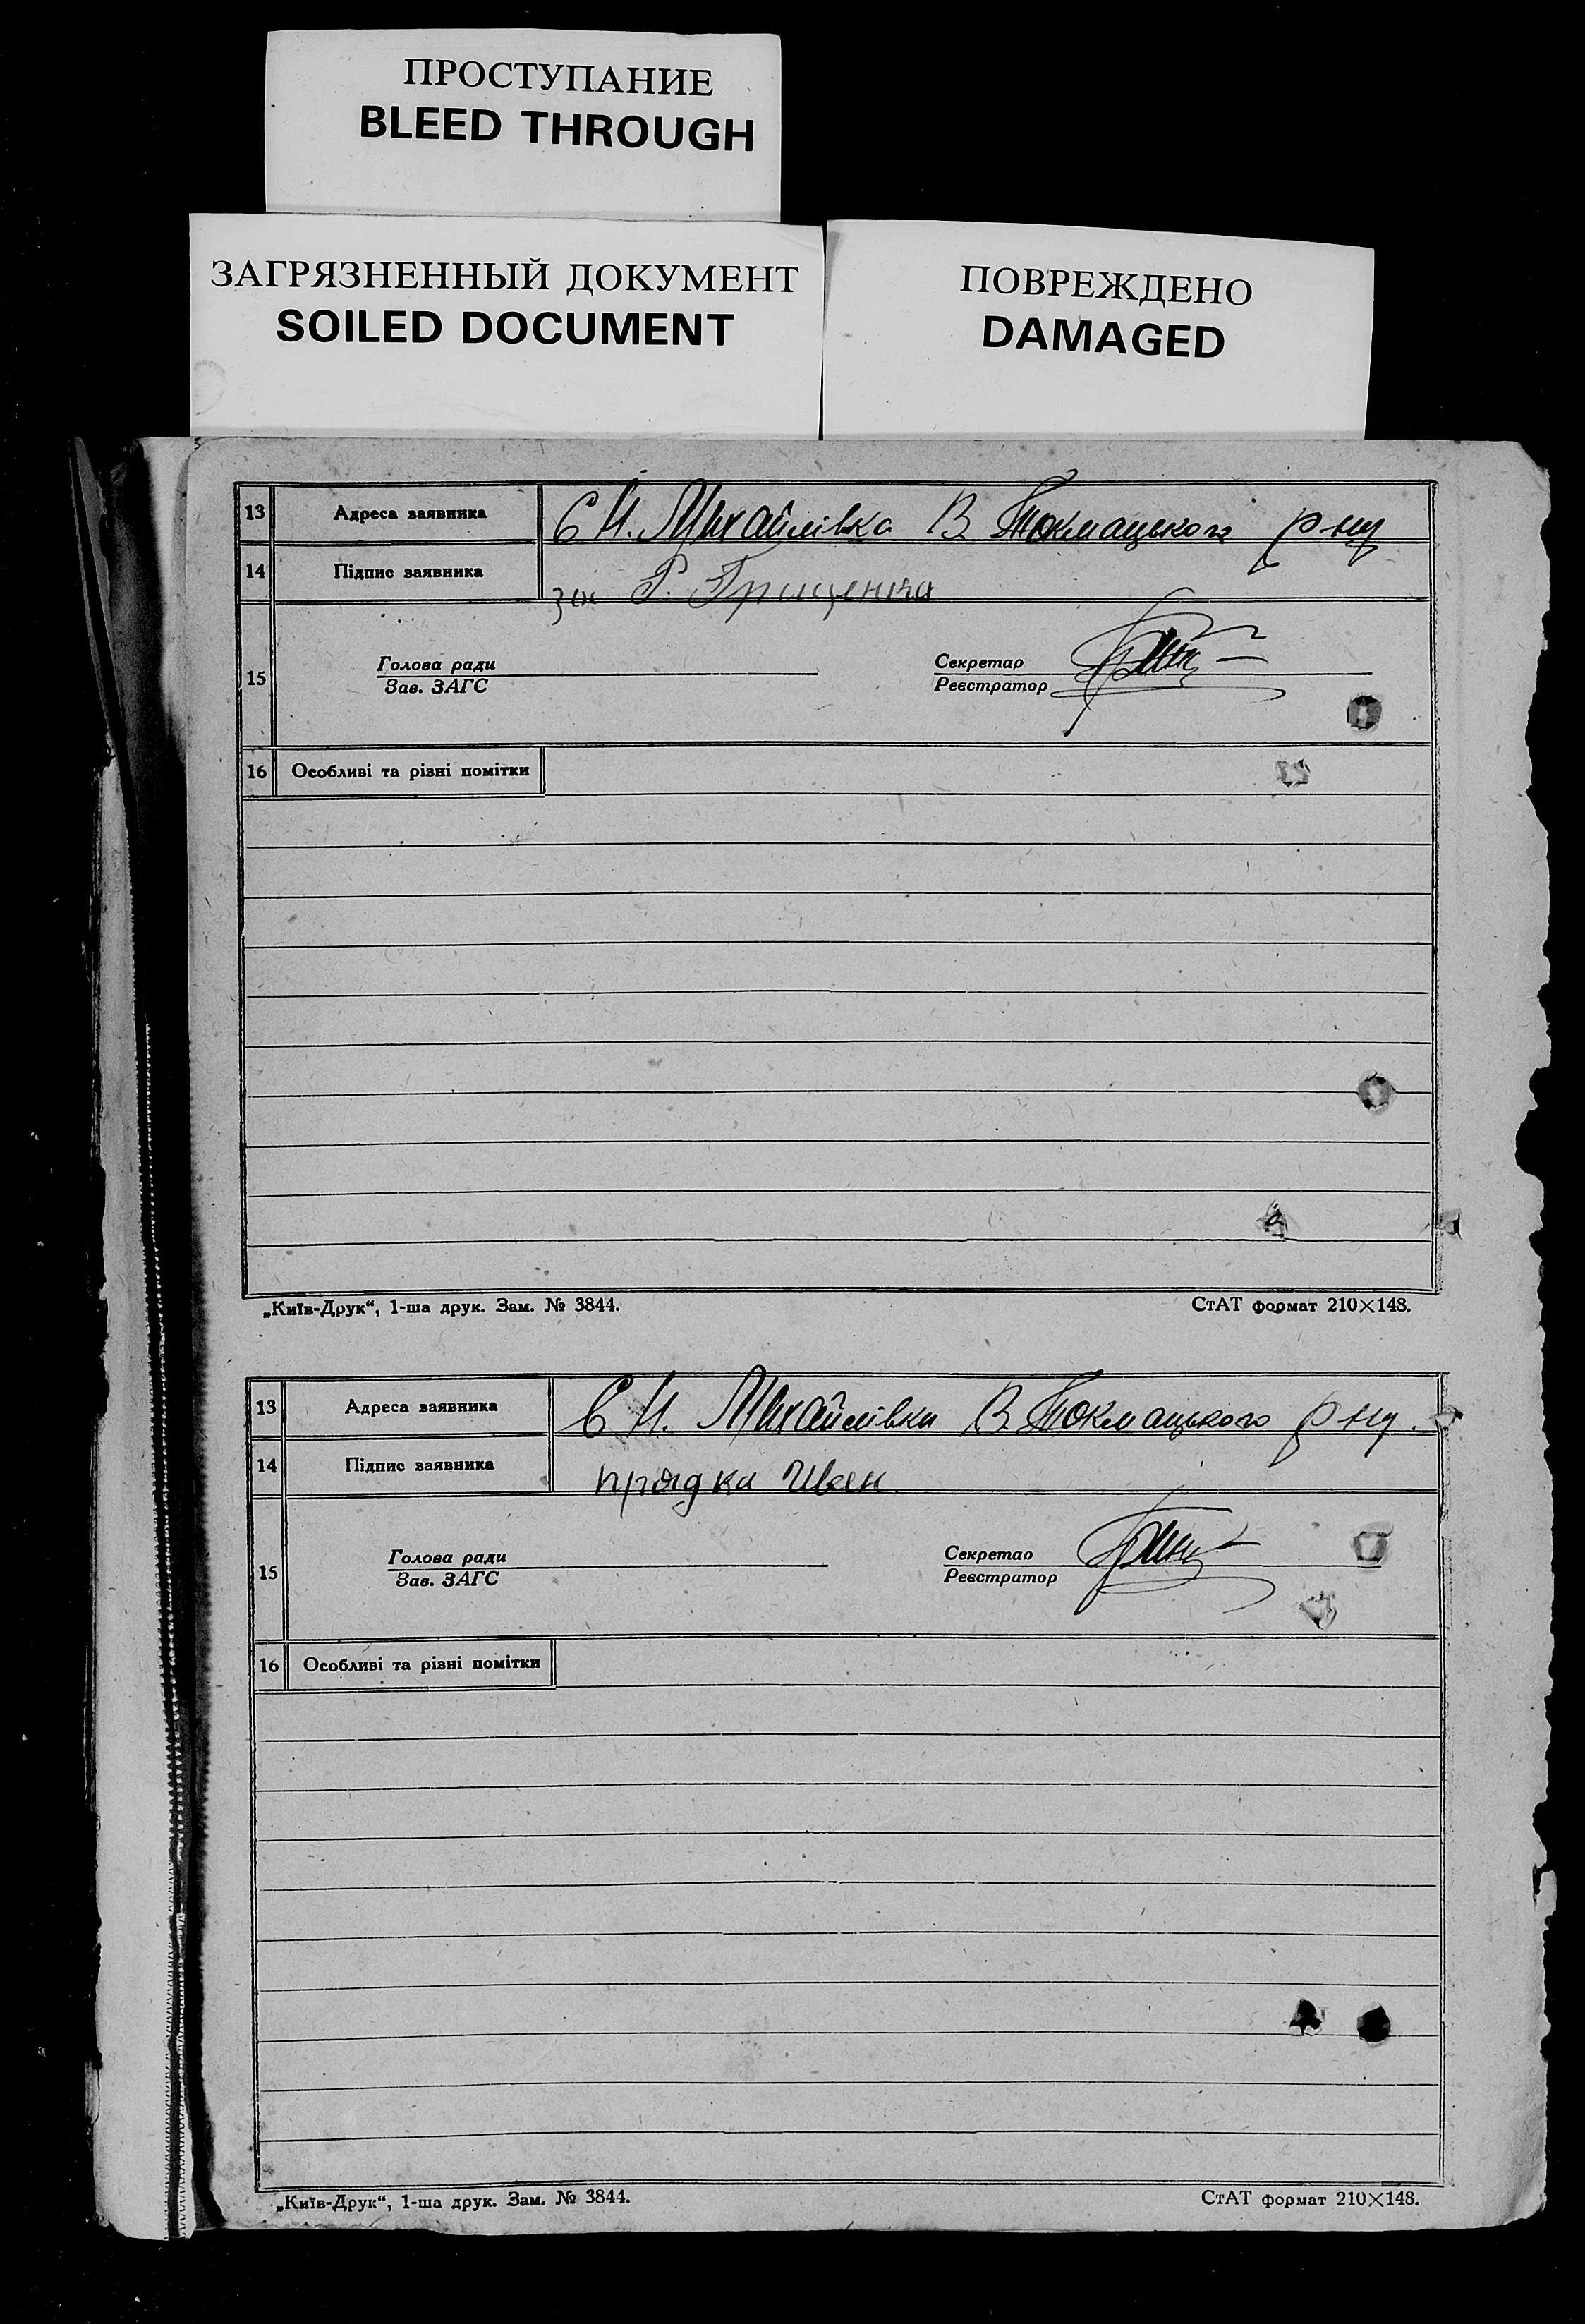 ПРОСТУПАНИЕ
BLEED THROUGH
ЗАГРЯЗНЕННЫЙ ДОКУМЕНТ
SOILED DOCUMENT
ПОВРЕЖДЕНО
DAMAGED
13 Адреса заявника С Н. Михайлівка В Токмацького р ну
14 Підпис заявника за Р. Грищенка
15 Голова ради
Зав. ЗАГС
Секретар
Реєстратор
16 Особливі та різні помітки
„Київ-Друк“, 1-ша друк. Зам. № 3844. СтАТ формат 210×148.
13 Адреса заявника С Н. Михайлівка В. Токмацького р ну.
14 Підпис заявника прядка Иван
15 Голова ради
Зав. ЗАГС
Секретар
Реєстратор
16 Особливі та різні помітки
„Київ-Друк“, 1-ша друк. Зам. № 3844. СтАТ формат 210×148.